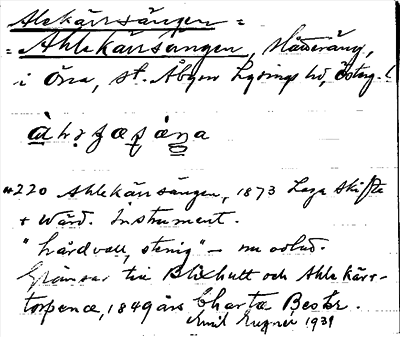 Alekärrsängen =
= Ahlekärrsängen, slåtteräng,
i Öna, st. Åby sn Lysings hd, Östeg. l
#220 Ahlekärrsängen, 1873 Laga Skifte
+ Wärd. Instrument.
"hårdvall, stenig" – nu odlad.
Gränsar till Blixhult och Ahlekärrs-
torpence, 1849 års Charta Beskr.
Emil 1931